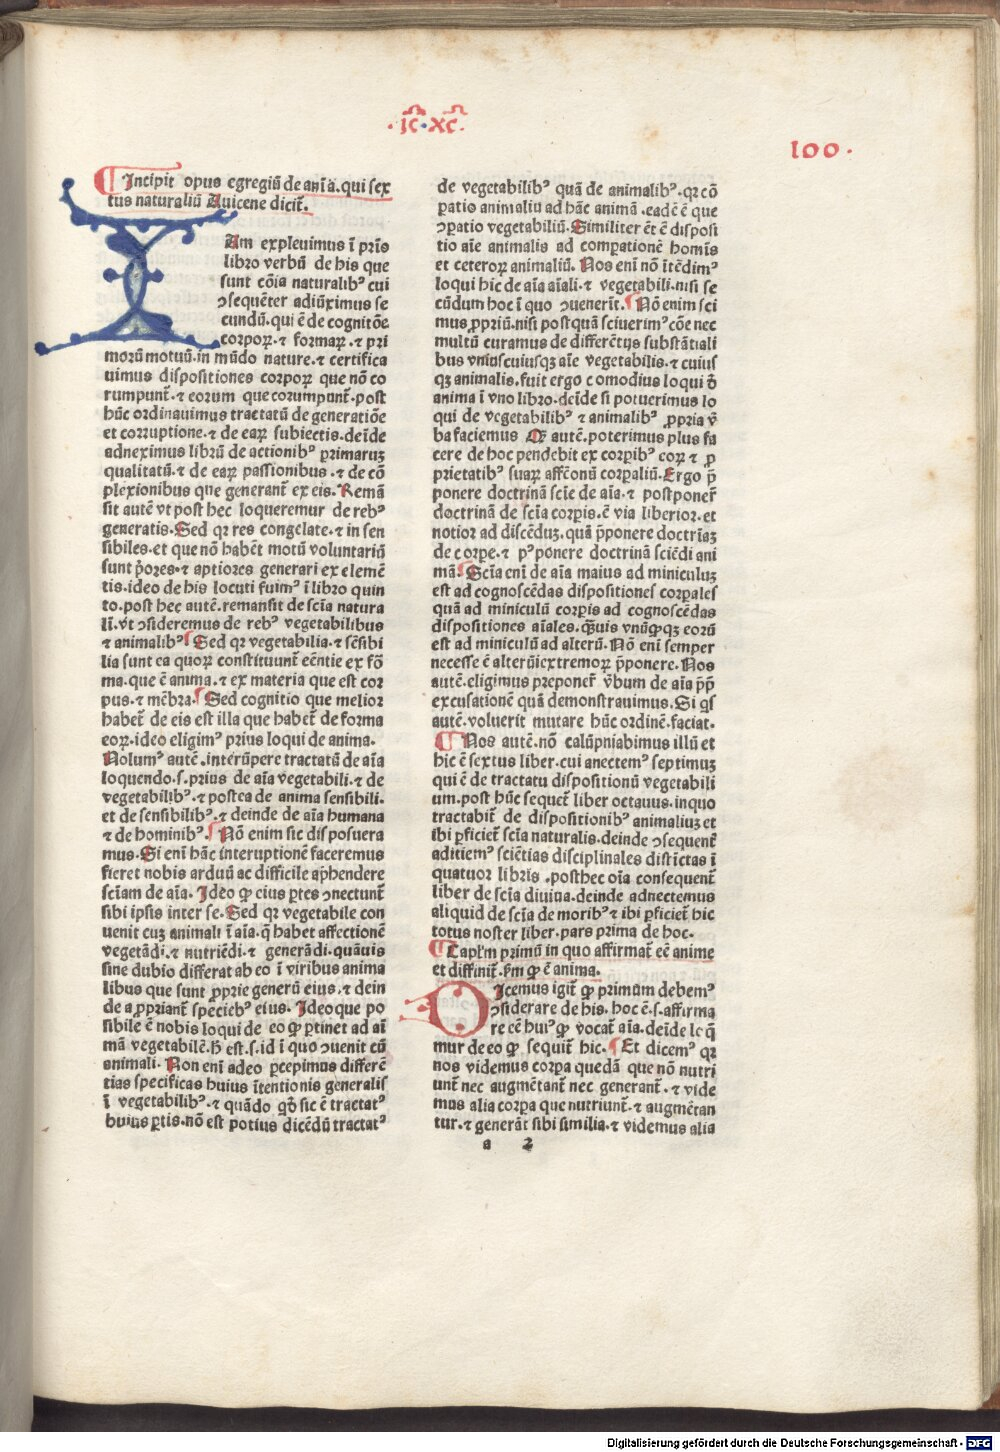 .ic̄.xc̄.
100.
¶ Incipit opus egregiū de anīa.qui sex
tus naturaliū Auicene dicit̄.
IAm expleuimus ī prīo
libro verbū de his que
sunt cōia naturalibꝰ cui
ↄsequēter adiūximus se
cundū.qui ē de cognitōe
corporꝝ.⁊ formarꝝ.⁊ pri
morū motuū.in mūdo nature.⁊ certifica
uimus dispositiones corporꝝ que nō co
rumpunt̄.⁊ eorum que corumpunt̄.post
hūc ordinauimus tractatū de generatiōe
et corruptione.⁊ de earꝝ subiectis.deīde
adneximus librū de actionibꝰ primaruꝫ
qualitatū.⁊ de earꝝ passionibus.⁊ de cō
plexionibus que generant̄ ex eis.Remā
sit autē vt post hec loqueremur de rebꝰ
generatis.Sed qꝛ res congelate.⁊ in sen
sibiles.et que nō habēt motū voluntariū
sunt p̄ores.⁊ aptiores generari ex elemē
tis.ideo de his locuti fuimꝰ ī libro quin
to.post hec autē.remansit de scīa natura
lī.vt ↄsideremus de rebꝰ vegetabilibus
⁊ animalibꝰ. Sed qꝛ vegetabilia.⁊ sēsibi
lia sunt ea quorꝝ constituunt̄ eēntie ex fō
ma.que ē anima.⁊ ex materia que est cor
pus.⁊ mēbra. Sed cognitio que melior
habet̄ de eis est illa que habet̄ de forma
eorꝝ.ideo eligimꝰ prius loqui de anima.
Nolumꝰ autē.interūpere tractatū de aīa
loquendo.s.prius de aīa vegetabili.⁊ de
vegetabilibꝰ.⁊ postea de anima sensibili.
et de sensibilibꝰ.⁊ deinde de aīa humana
⁊ de hominibꝰ. Nō enim sic disposuera
mus.Si enī hāc interuptionē faceremus
fieret nobis arduū ac difficile aꝓhendere
scīam de aīa. Ideo ꝙ eius ꝑtes ↄnectunt̄
sibi ipsis inter se.Sed qꝛ vegetabile con
uenit cuꝫ animali ī aīa.q̄ habet affectionē
vegetādi.⁊ nutriēdi.⁊ generādi.quāuis
sine dubio differat ab eo ī viribus anima
libus que sunt ꝓprie generū eius.⁊ dein
de aꝓpriant̄ speciebꝰ eius. Ideoque po
sibile ē nobis loqui de eo ꝙ ꝑtinet ad ai
mā vegetabilē.h̄ est.s.id ī quo ↄuenit cū
animali. Non enī adeo ꝑcepimus differē
tias specificas huius ītentionis generalis
ī vegetabilibꝰ.⁊ quādo qd̄ sic ē tractatꝰ
huius ꝑtis.nō est potius dicēdū tractatꝰ
de vegetabilibꝰ quā de animalibꝰ.qꝛ cō
ꝑatio animaliū ad hāc animā.eadē ē que
ↄꝑatio vegetabiliū.Similiter ēt ē disposi
tio aīe animalis ad comꝑationē homīs
et ceterorꝝ animaliū. Nos enī nō ītēdimꝰ
loqui hic de aīa aīali.⁊ vegetabili.nisi se
cūdum hoc ī quo ↄuenerīt. Nō enim sci
mus ꝓpriū.nisi postquā sciuerimꝰ cōe nec
multū curamus de differētijs substātiali
bus vniuscuiusqꝫ aīe vegetabilis.⁊ cuius
qꝫ animalis.fuit ergo comodius loqui d̄
anima ī vno libro.deīde si potuerimus lo
qui de vegetabilibꝰ ⁊ animalibꝰ ꝓpria v̄
ba faciemus Qꝛ autē.poterimus plus fa
cere de hoc pendebit ex corꝑibꝰ eorꝝ ⁊ ꝓ
prietatibꝰ suarꝝ affcōnū corꝑaliū.Ergo p̄
ponere doctrinā scīe de aīa.⁊ postponer̄
doctrinā de scīa corꝑis.ē via liberior.et
notior ad discēduꝫ.quā p̄ponere doctrīaꝫ
de corꝑe.⁊ pꝰponere doctrinā sciēdi ani
mā. Scīa enī de aīa maius adminiculuꝫ
est ad cognoscēdas dispositiones corꝑales
quā adminiculū corꝑis ad cognoscēdas
dispositiones aīales.q̄uis vnūqꝙqꝫ eorū
est adminiculū ad alterū. Nō enī semper
necesse ē alterū iextremorꝝ p̄ponere.Nos
autē.eligimus preponer̄ v̄bum de aīa ꝓp̄
excusationē quā demonstrauimus.Si qs̄
autē.voluerit mutare hūc ordinē.faciat.
¶ Nos autē.nō calūpniabimus illū et
hic ē sextus liber.cui anectemꝰ septimuꝫ
qui ē de tractatu dispositionū vegetabili
um.post hūc sequet̄ liber octauus.in quo
tractabit̄ de dispositionibꝰ animaliuꝫ et
ibi ꝑficiet̄ scīa naturalis.deinde ↄsequent̄
aditiemꝰ sciētias disciplinales distīctas ī
quatuor libris.posthec oīa consequent̄
liber de scīa diuina.deinde adnectemus
aliquid de scīa de moribꝰ ⁊ ibi ꝑficiet̄ hic
totus noster liber.pars prima de hoc.
¶ Capl̄m primū in quo affirmat̄ eē anime
et diffinit̄.s̄m ꝙ ē anima.
DIcemus igit̄ ꝙ primum debemꝰ
ↄsiderare de his.hoc ē.s.affirma
re eē huiꝰ ꝙ vocat̄ aīa.deīde loq̄
mur de eo ꝙ sequit̄ hic. Et dicemꝰ qꝛ
nos videmus corꝑa quedā que nō nutri
unt̄ nec augmētant̄ nec generant̄.⁊ vide
mus alia corꝑa que nutriunt̄.⁊ augmētan
tur.⁊ generāt sibi similia.⁊ videmus alia
a 2
Digitalisierung gefördert durch die Deutsche Forschungsgemeinschaft - DFG